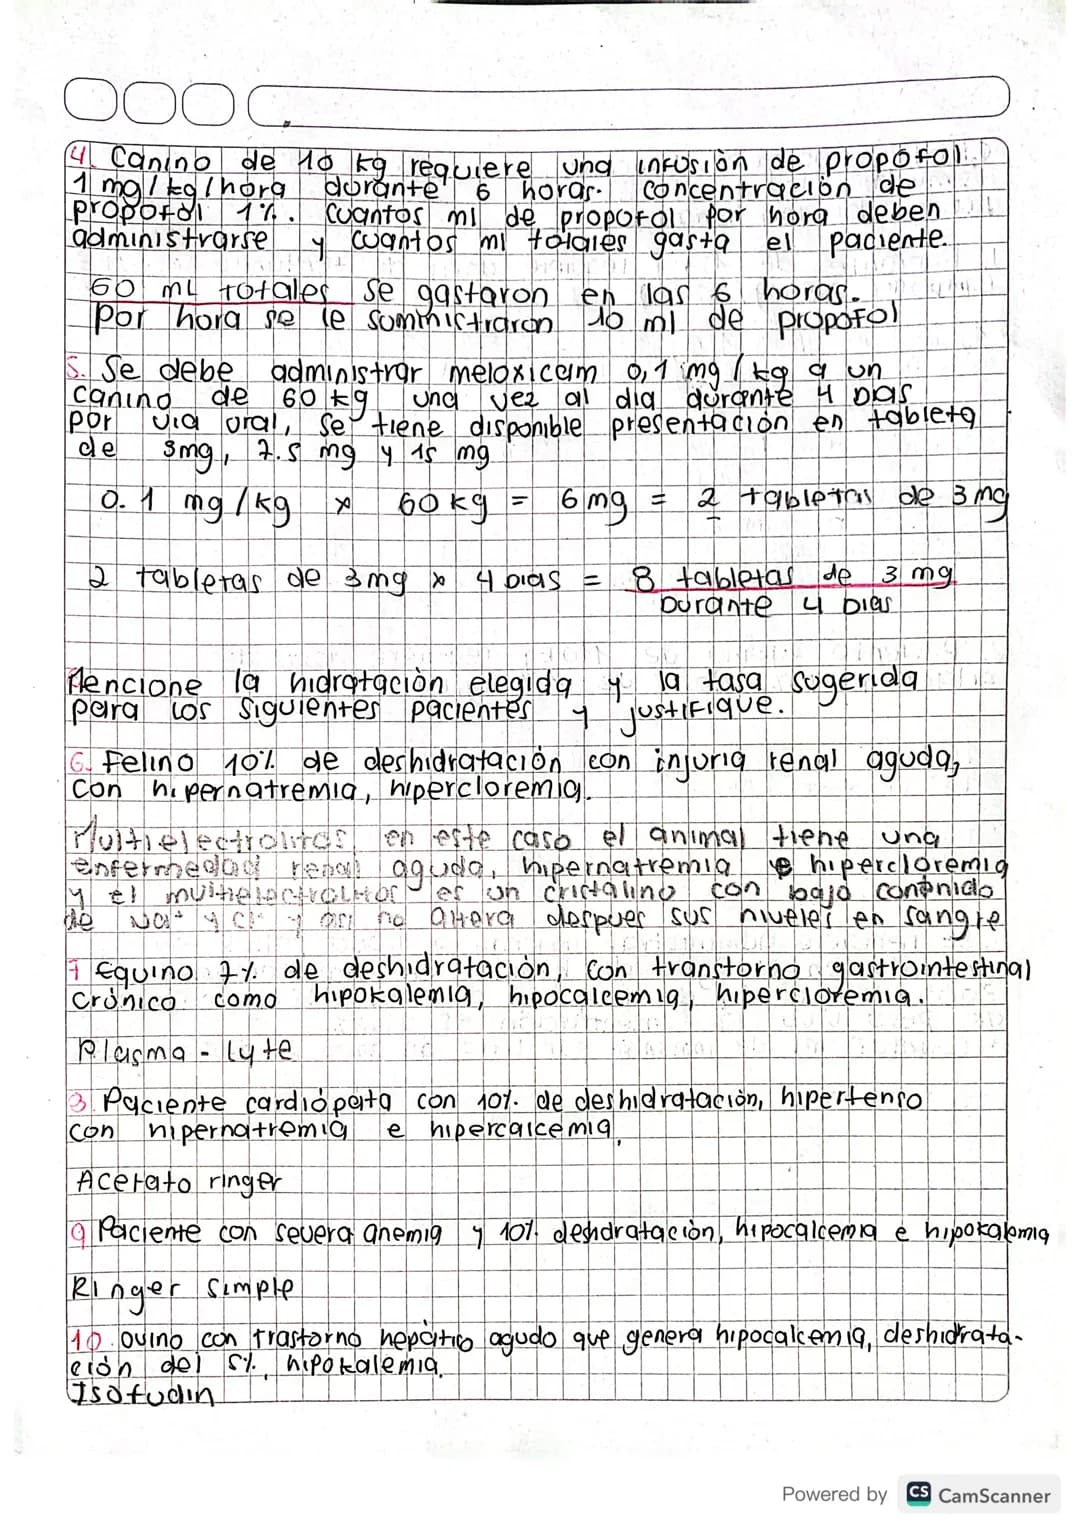 4. Canino de 10 kg requiere una infusión de propofol
1 mg/kg/hora durante 6 horas. concentración de
propofol 1%. Cuantos ml de propofol por hora deben
administrarse y cuantos ml totales gasta el paciente.
60 mL totales se gastaron en las 6 horas.
Por hora se le suministraron 10 ml de propofol
5. Se debe administrar meloxicam 0,1 mg/kg a un
canino de 60 kg una vez al dia durante 4 Dias
por via oral, se tiene disponible presentación en tableta
de 3mg, 7.5 mg y 15 mg
0.1 mg/kg x 60 kg = 6 mg = 2 tabletas de 3 mg
2 tabletas de 3mg x 4 Dias = 8 tabletas de 3 mg
Durante 4 Dias
Mencione la hidratación elegida y la tasa sugerida
para los siguientes pacientes y justifique.
6. Felino 10% de deshidratación con injuria renal aguda,
con hipernatremia, hipercloremia.
Multielectrolitos, en este caso el animal tiene una
enfermedad renal aguda, hipernatremia e hipercloremia
y el multielectrolitos es un cristalino con bajo contenido
de Na+ y Cl- y asi no altera despues sus niveles en sangre
7 Equino 7% de deshidratación, con transtorno gastrointestinal
Crónico como hipokalemia, hipocalcemia, hipercloremia.
Plasma - lyte
3. Paciente cardiópata con 10% de deshidratación, hipertenso
con hipernatremia e hipercalcemia,
Acetato ringer
9 Paciente con severa anemia y 10% deshdratación, hipocalcemia e hipokalemia
Ringer simple
10. ovino con trastorno hepático agudo que genera hipocalcemia, deshidrata-
ción del 5%, hipokalemia.
Isofudin
Powered by CS CamScanner